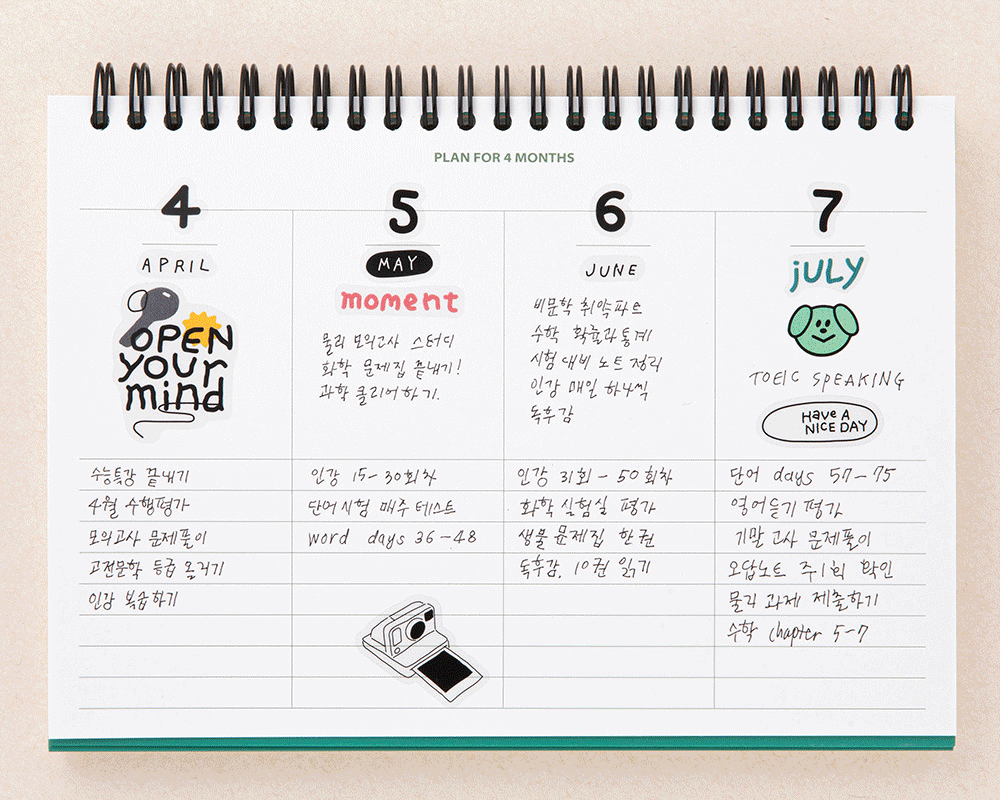 PLAN FOR 4 MONTHS
4
APRIL
OPEN
your
mind
수능특강 끝내기
4월 수행평가
모의고사 문제풀이
고전문학 등급 올리기
인강 복습하기
5
MAY
moment
물리 모의고사 스터디
화학 문제집 끝내기!
과학 클리어하기.
인강 15-30회차
단어시험 매주 테스트
word days 36-48
6
JUNE
비문학 취약파트
수학 확률과통계
시험대비 노트정리
인강 매일 하나씩
독후감
인강 31회 - 50회차
화학실험실 평가
생물 문제집 한권
독후감, 10권 읽기
7
jULY
TOEIC SPEAKING
Have A
NICE DAY
단어 days 57-75
영어듣기 평가
기말고사 문제풀이
오답노트 주1회 확인
물리 과제 제출하기
수학 chapter 5-7